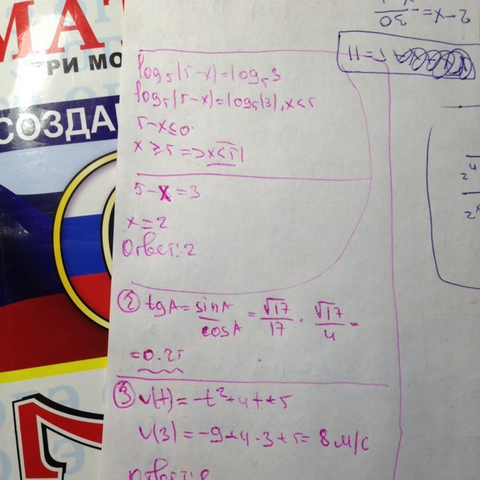 МАТ
ТРИ МО
СОЗДА
2-x=-30
5=11
log₅(5-x)=log₅3
log₅(5-x)=log₅(3), x<5
5-x≤0
x≥5=>x<5
5-x=3
x=2
Ответ: 2
② tgA=sinA/cosA=√17/17·√17/4=
=0.25
③ v(t)=-t²+4t+5
v(3)=-9+4·3+5=8м/с
Ответ: 8